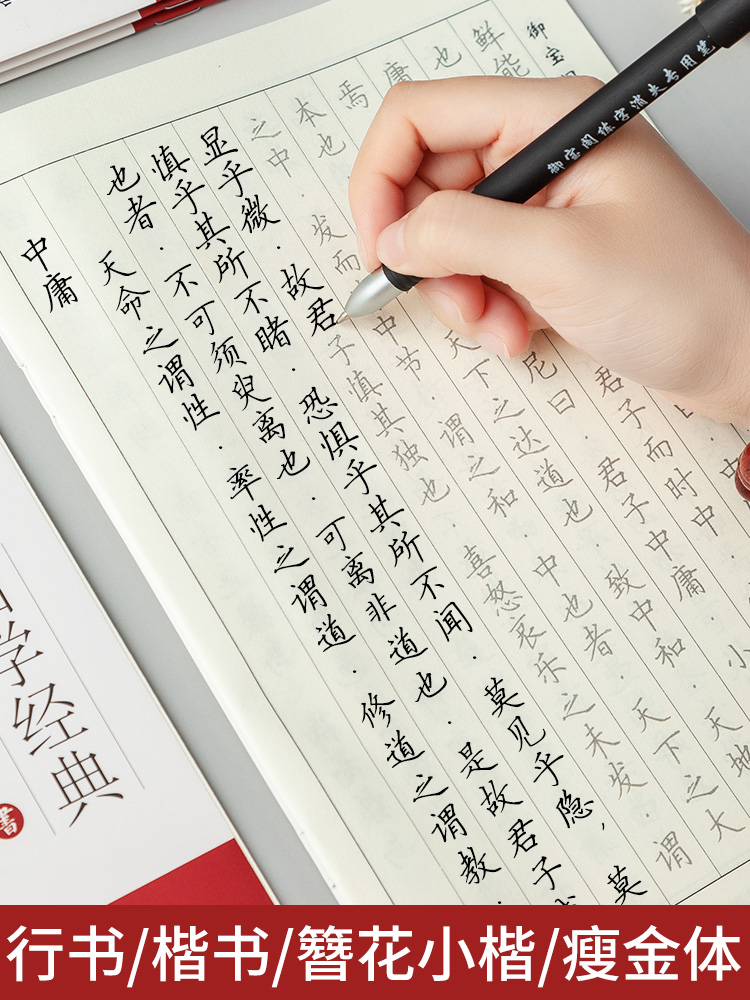 中庸
天命之谓性．率性之谓道．修道之谓教．
也者．不可须臾离也．可离非道也．是故君子
慎乎其所不睹．恐惧乎其所不闻．莫见乎隐，莫
显乎微．故君子慎其独也．喜怒哀乐之未发．谓
之中．发而中节．谓之和．中也者．天下之大
本也．天下之达道也．致中和．天地
焉．尼曰．君子中庸．小
庸君子而时中．
也
鲜能
御宝阁
御宝阁练字消失专用笔
学经典
書
行书/楷书/簪花小楷/瘦金体